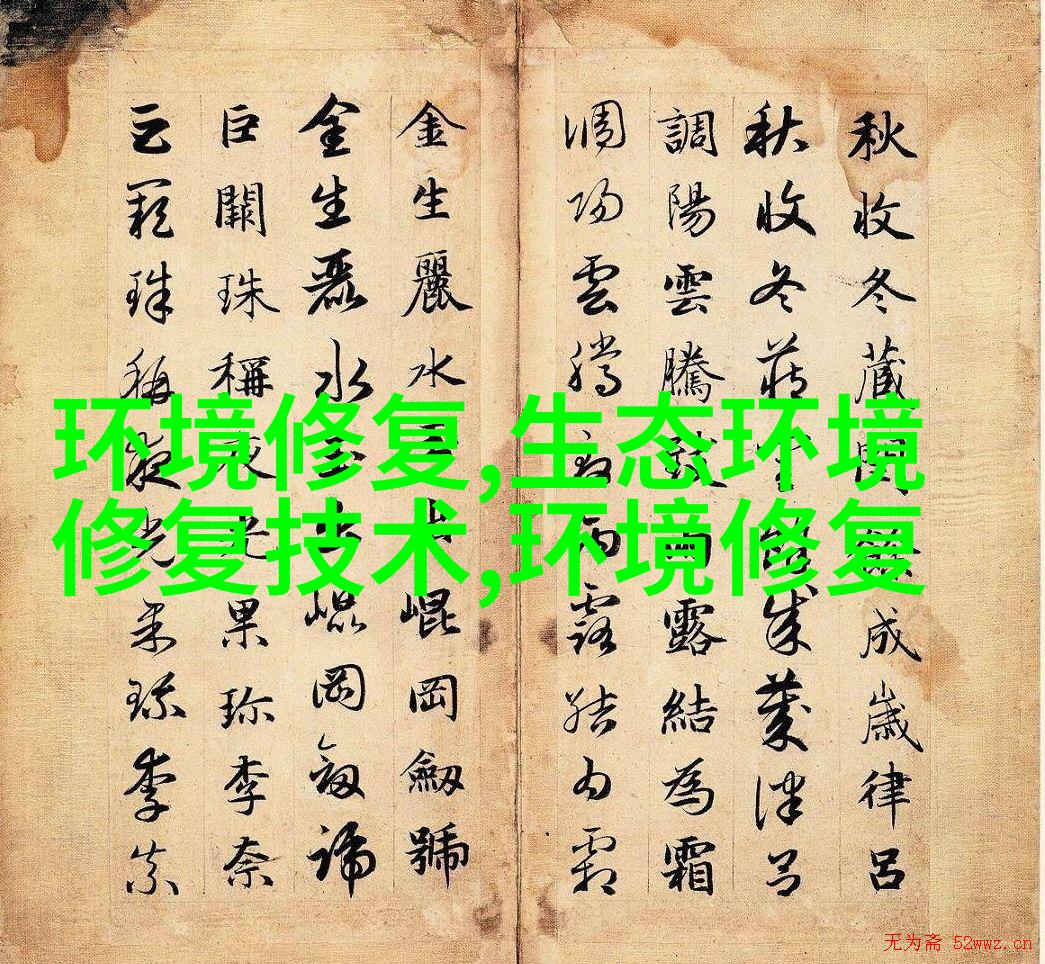 秋收冬藏閏餘成歲律呂
秋收冬藏閏餘成歲律呂
調陽雲騰致雨露結為霜
調陽雲騰致雨露結為霜
金生麗水玉出崐岡劔號
金生麗水玉出崐岡劔號
巨闕珠稱夜光果珎李柰
巨闕珠稱夜光果珎李柰
环境修复,生态环境
修复技术,环境修复
无为斋 52wwz.cn